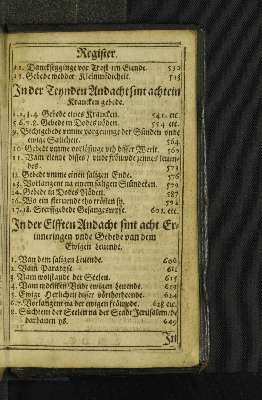 Register.
12. Dancksegginge vor Trost im Elende. 530
13. Gebede wedder Kleinmödicheit. 513
In der Teynden Andacht sint achtein
Krancken gebede.
1. 2. 3. 4. Gebede eines Krancken. 541. etc.
5. 6. 7. 8. Gebede in Dodes nöden. 554. etc.
9. Bechtgebede vmme vorgevinge der Sünden vnde
ewige Salicheit. 564
10. Gebede vmme vorlösinge vth disser Werlt. 569
11. Vam elende disses / vnde fröuwde jennes leuen-
des. 573
12. Gebede vmme einen saligen Ende. 576
13. Vorlangent na einem saligen Stündeken. 579
14. Gebede in Dodes Nöden. 587
16. Wo ein steruende tho trösten sy. 592
17. 18. Sterffgebede Gesangeswyse. 602. etc.
In der Elfften Andacht sint acht Er-
inneringen vnde Gebede van dem
Ewigen Leuende.
1. Van dem saligen Leuende. 606
2. Vam Paradyse. 611
3. Vam wolstande der Seelen. 615
4. Vam vnde Ewigen Leuende. 619
5. Ewige Herlicheit disser vörthothende. 624
6. 7. Vorlangent na der ewigen fröuwde. 628 etc.
8. Süchtent der Seelen na der Stadt Jerusalem / de
dar bauen ys. 649
In